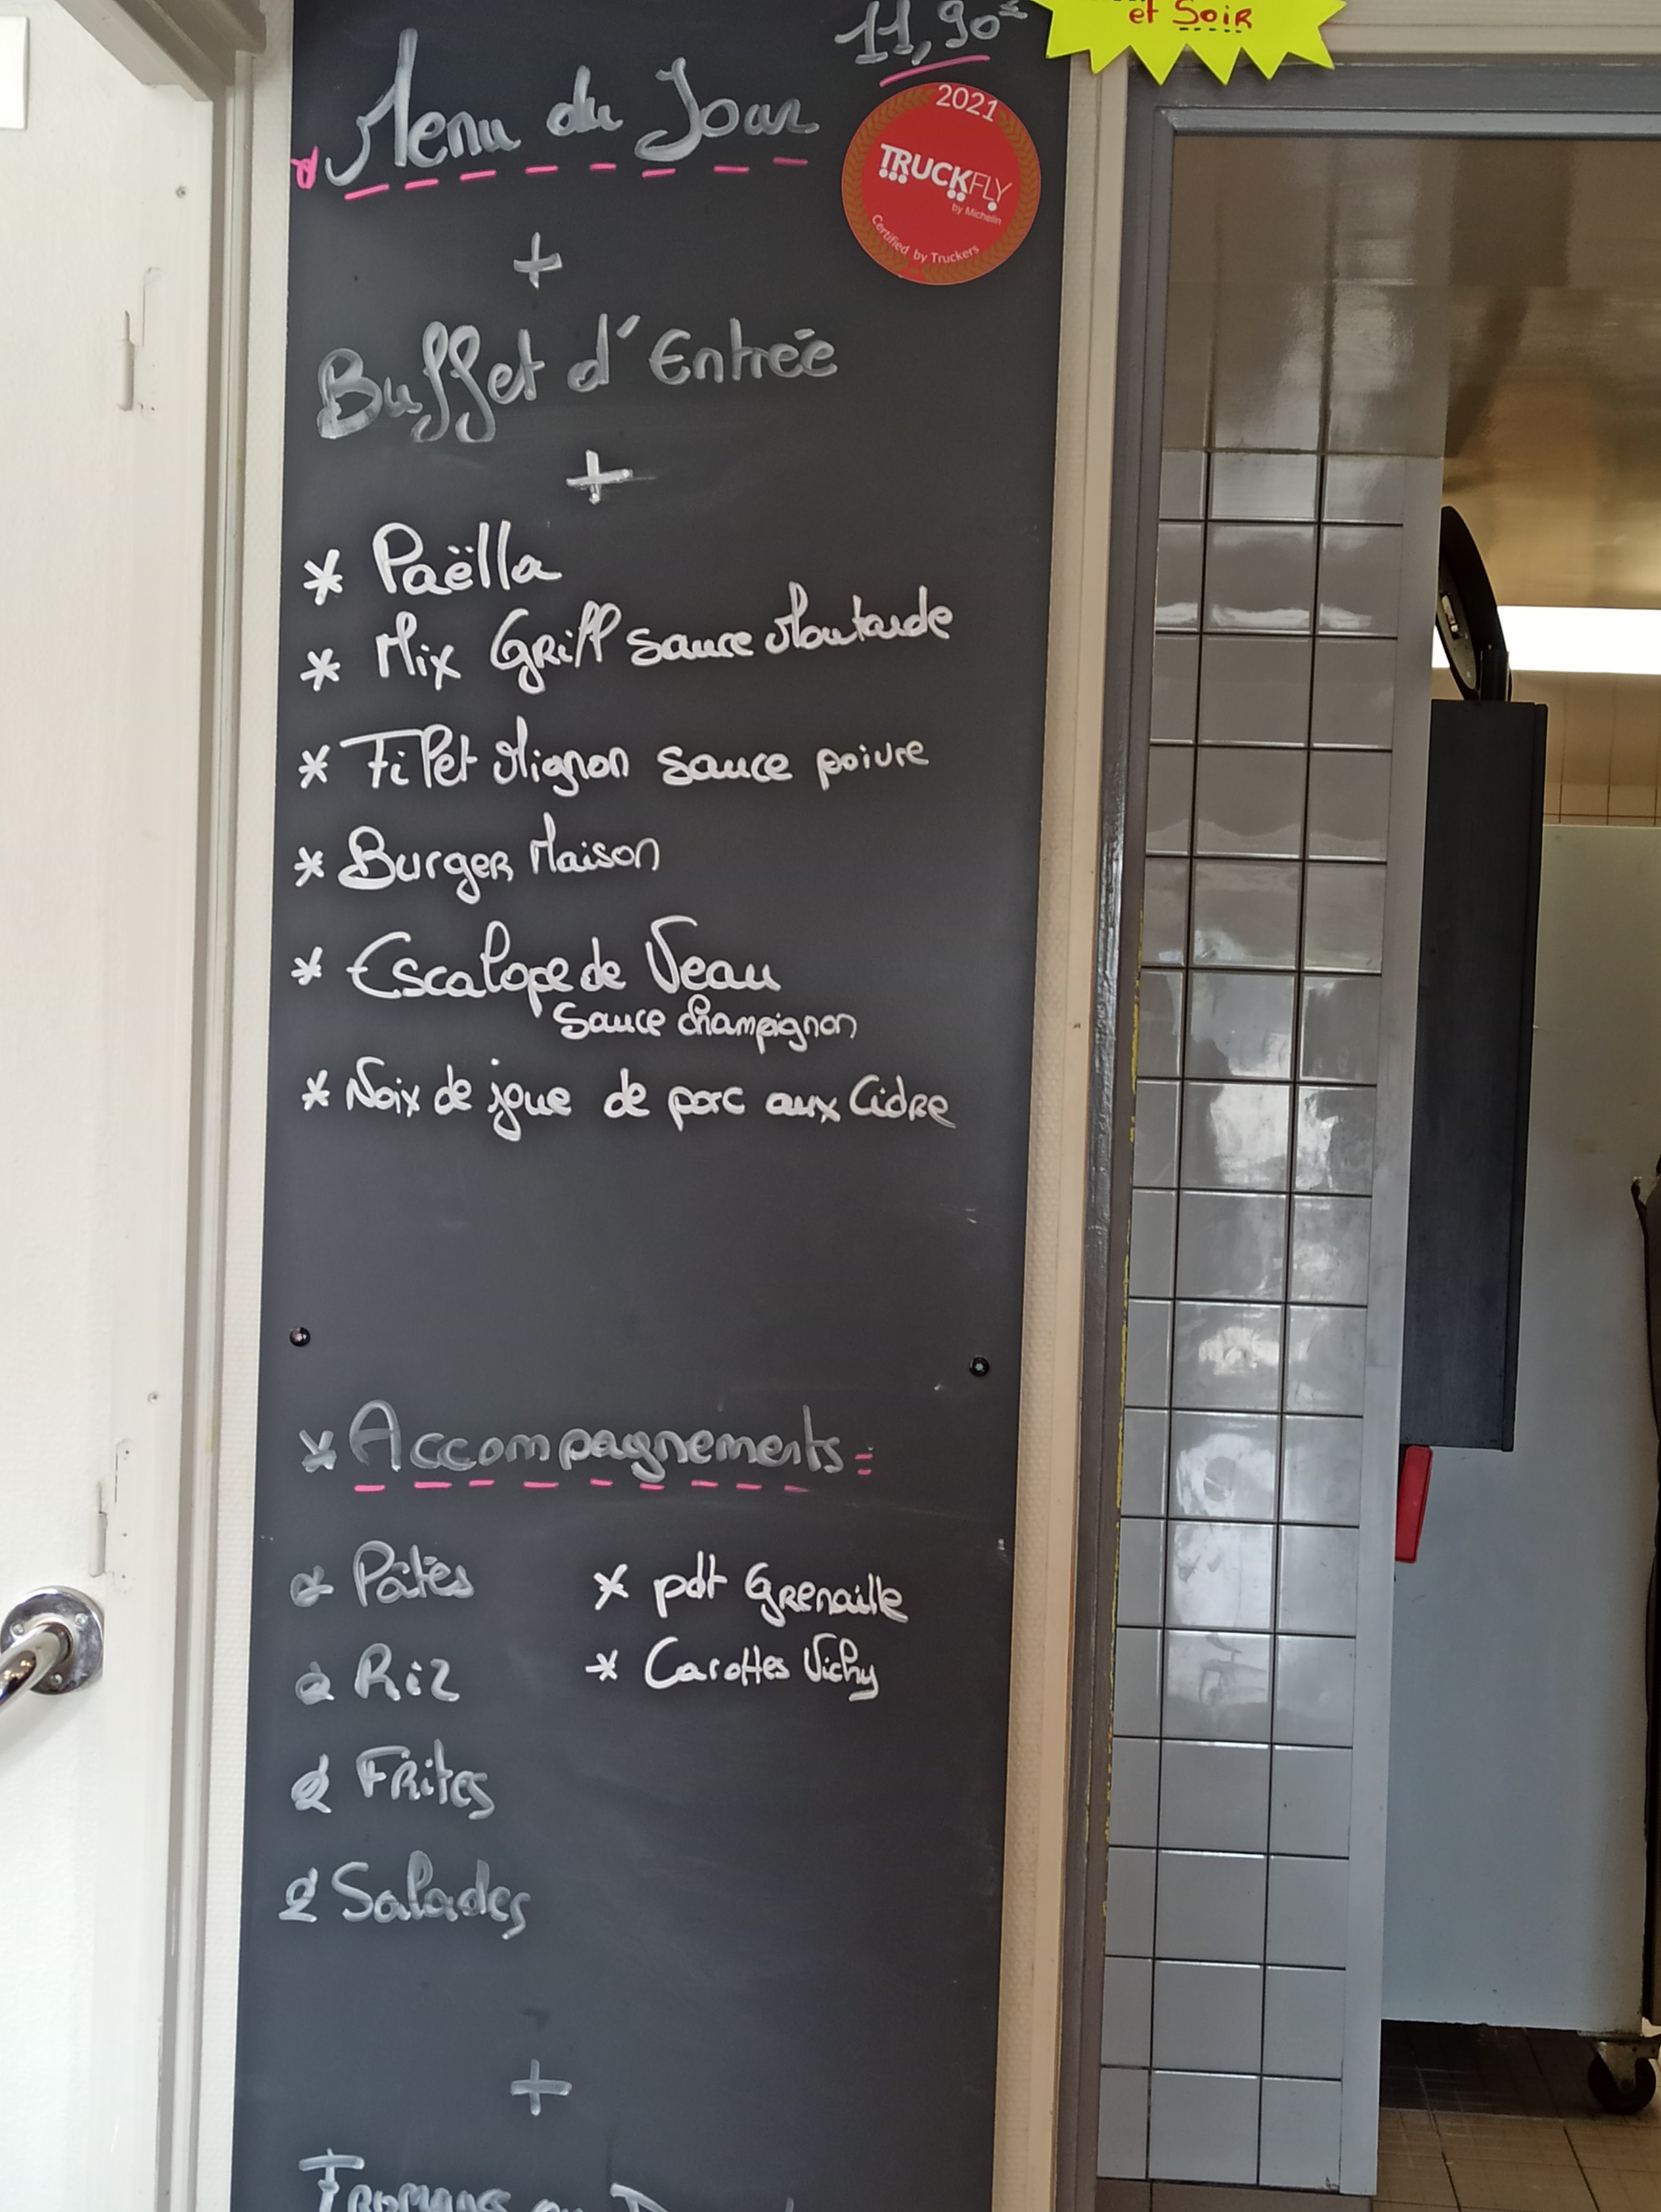 et SOIR
11,90€
Menu du Jour
2021
TRUCKFLY
by Michelin
Certified by Truckers
+
Buffet d'Entrée
+
* Paëlla
* Mix Grill sauce Moutarde
* Filet Mignon sauce poivre
* Burger Maison
* Escalope de Veau
Sauce champignon
* Noix de joue de porc aux Cidre
* Accompagnements =
Pâtes * pdt Grenaille
Riz * Carottes Vichy
Frites
Salades
+